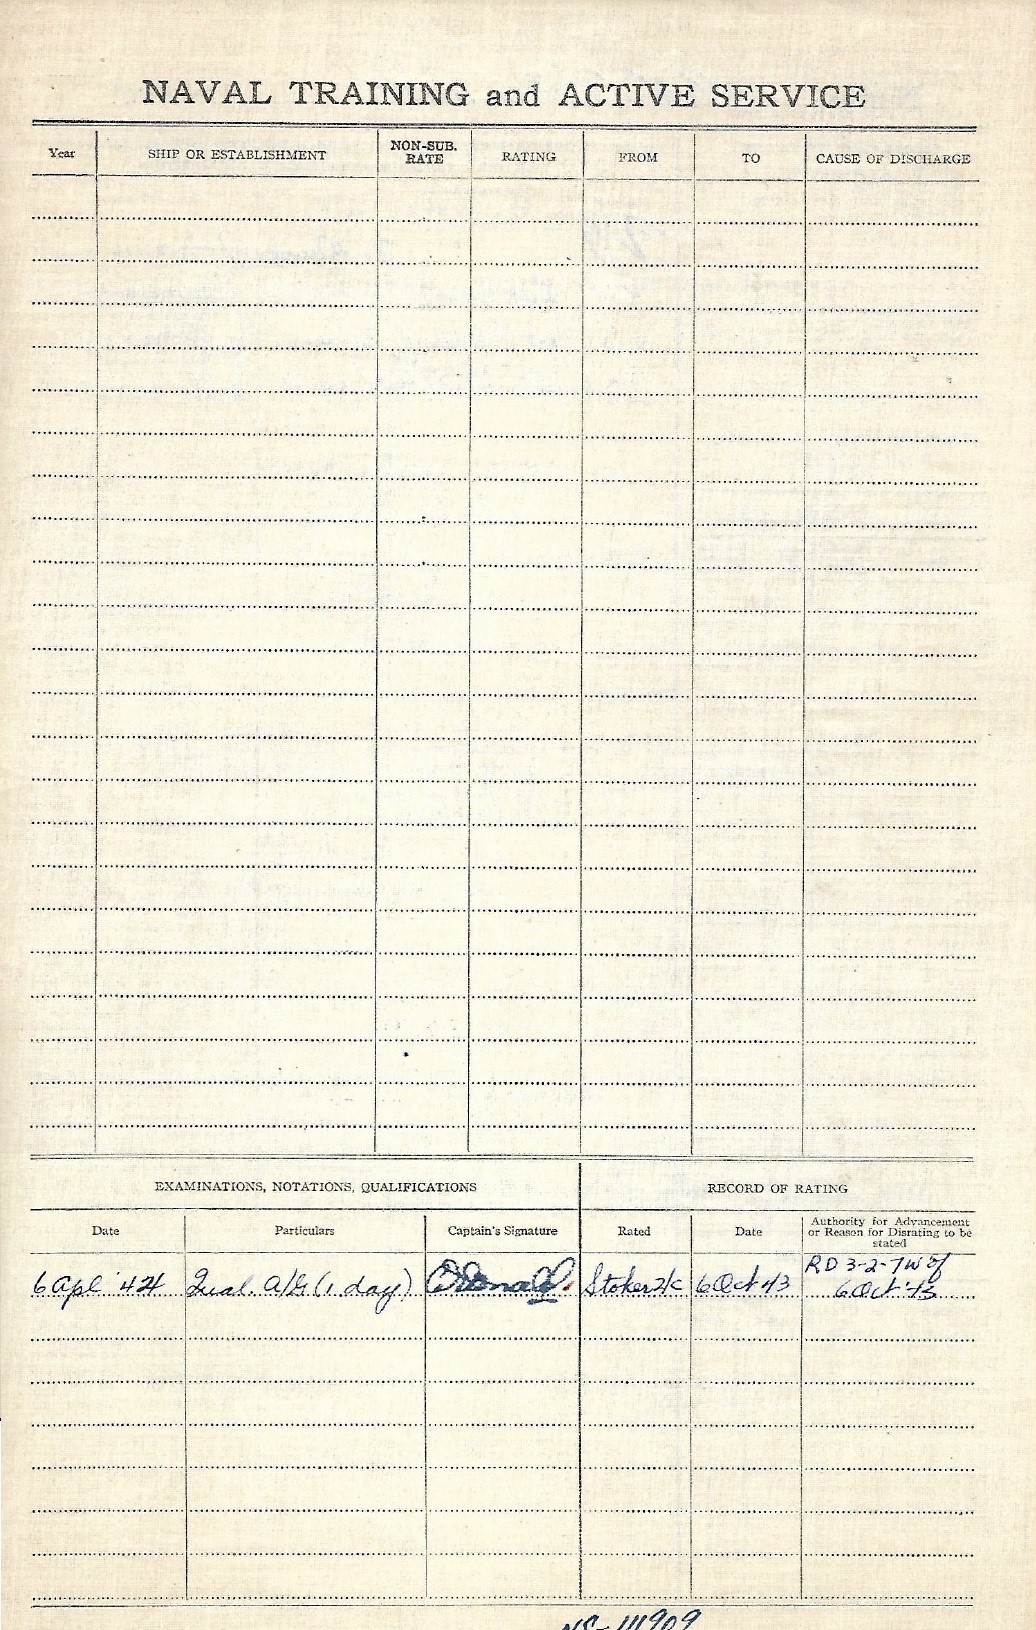 NAVAL TRAINING and ACTIVE SERVICE
Year SHIP OR ESTABLISHMENT NON-SUB. RATE RATING FROM TO CAUSE OF DISCHARGE
EXAMINATIONS, NOTATIONS, QUALIFICATIONS RECORD OF RATING
Date Particulars Captain's Signature Rated Date Authority for Advancement or Reason for Disrating to be stated
6 Apl '44 Qual. A/G (1 day) Stoker 2/c 6 Oct 43 RD 3-2-7W of
6 Oct '43
NS-111909